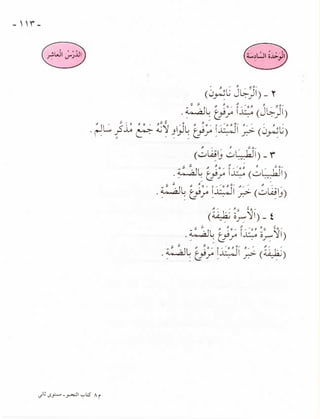 - ١١٣ -
الْوَحْدَةُ السَّادِسَةُ
الدَّرْسُ الْعَاشِرُ
٢ - (الرِّجَالُ نَائِمُونَ)
(الرِّجَالُ) مُبْتَدَأٌ مَرْفُوعٌ بِالضَّمَّةِ .
(نَائِمُونَ) خَبَرُ الْمُبْتَدَإِ مَرْفُوعٌ بِالْوَاوِ لأَنَّهُ جَمْعُ مُذَكَّرٍ سَالِمٌ .
٣ - (الطَّبِيبَاتُ وَاقِفَاتٌ)
(الطَّبِيبَاتُ) مُبْتَدَأٌ مَرْفُوعٌ بِالضَّمَّةِ .
(وَاقِفَاتٌ) خَبَرُ الْمُبْتَدَإِ مَرْفُوعٌ بِالضَّمَّةِ .
٤ - (الأَسِرَّةُ نَظِيفَةٌ)
(الأَسِرَّةُ) مُبْتَدَأٌ مَرْفُوعٌ بِالضَّمَّةِ .
(نَظِيفَةٌ) خَبَرُ الْمُبْتَدَإِ مَرْفُوعٌ بِالضَّمَّةِ .
م ٨ كتاب النحو - مستوى ثاني